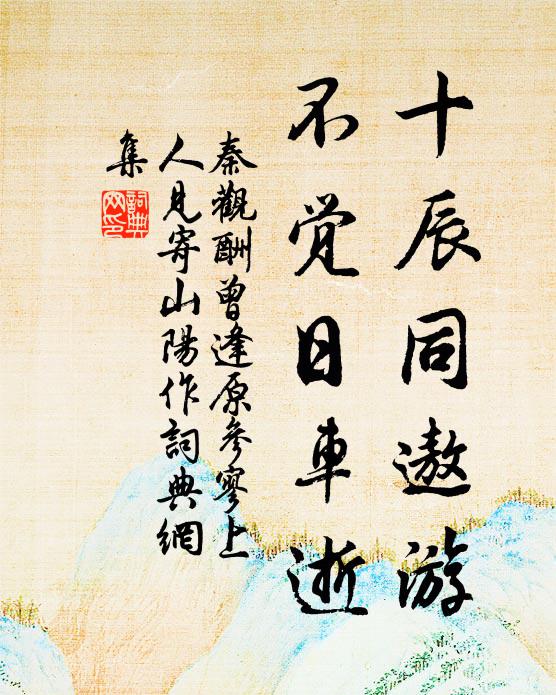 十辰同遨游
不觉日車逝
秦觀酬曾逢原參寥上
人見寄山陽作詞典網
集
詞典
网印